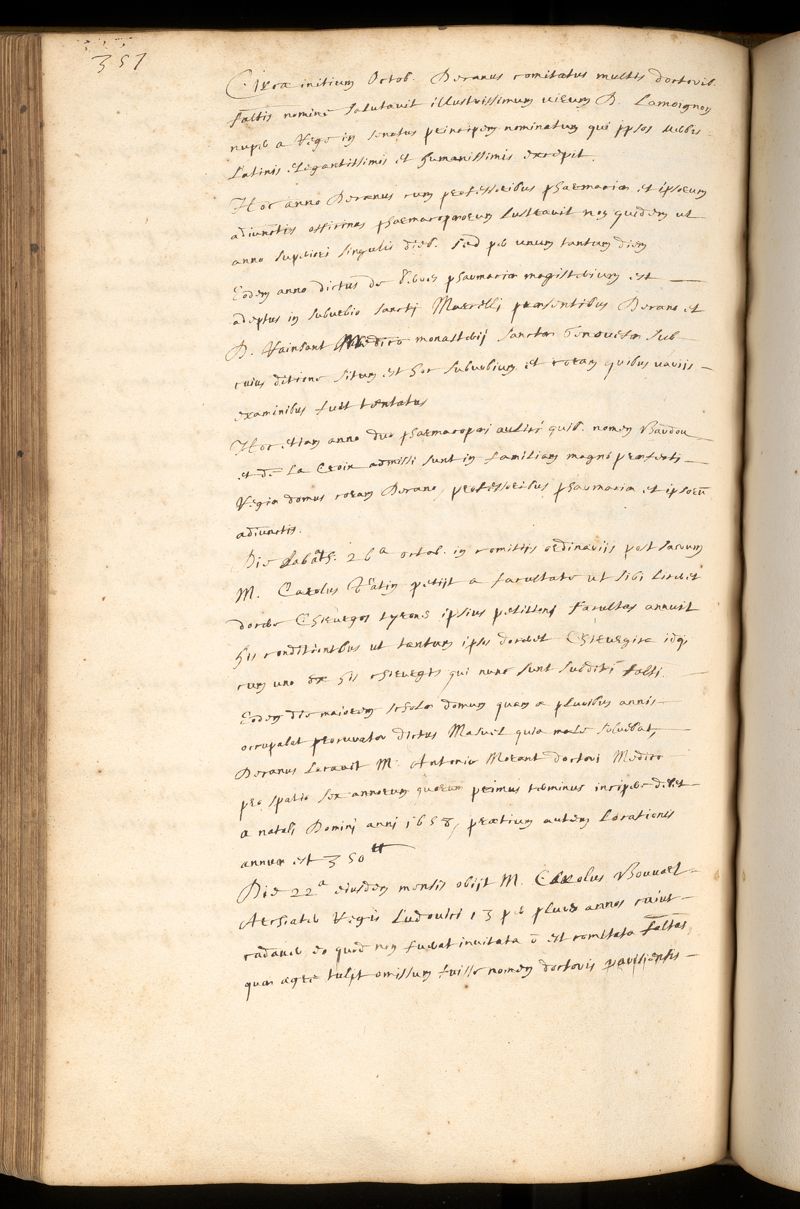 357
Circa initium Octob. Decanus comitatus multis doctorib.
faltis nomine salutavit illustrissimum virum D. Lamoignon
nuper a Rege in senatus principem nominatum qui ipsos verbis
Latinis elegantissimis et humanissimis excepit.
Hoc anno Decanus cum professoribus pharmaciæ et ipsorum
adiunctis officinas pharmacopæorum lustravit non quidem ut
anno superiori singulis dieb. sed per unum tantum diem
Eodem anno dictus de pharmaciæ magisterium est
adeptus in suburbio sancti Marcelli præsentibus Decano et
D. Vainsant Medico monasterij sanctæ Genovefæ sub
cuius ditione situm est hoc suburbium et coram quibus variis
examinibus fuit tentatus
Hoc etiam anno duo pharmacopæi quib. nomen Baudou
et de La Croix admissi sunt in familiam magni præfecti
Regiæ domus coram Decano, professoribus pharmaciæ et ipsorū
adiunctis.
Die sabath. 26a octob. in comitiis ordinariis post sacum
M. Carolus petijt a facultate ut sibi liceret
docere Chirurgos tyrone ipsius petitioni facultas annuit
his conditionibus ut tantum ipso doceret Chirurgiæ idq;
cum uno ex his chirurgis qui nunc sunt subditi falti.
Eodem die maiorem scholæ domum quam a pluribus annis
occupabat procurator dictus Masuel quia male solvebat,
Decanus locavit M. Antonio Morant doctori Medico
pro spatio sex annorum quorum primus terminus incipere debet
a natali Domini anni 1658, prætium autem Locationis
annuæ est 350 tt
Die 22a eiusdem mensis obijt M. Carolus Bouvart
Archiater Regis Ludovici 13 per plures annos cuius
cadaver eo quod non fuerat invitata ō est comitata faltas
quæ ægre tulit omissum fuisse nomen doctoris parisiensis